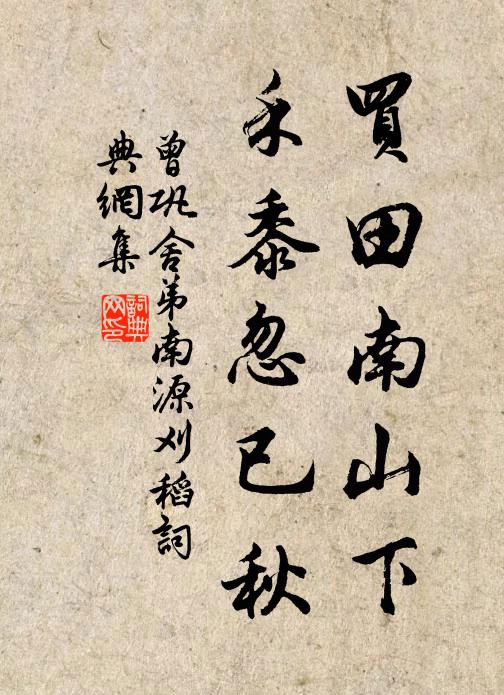 買田南山下
禾黍忽已秋
曾巩舍弟南源刈稻詞
典網集
詞典网印